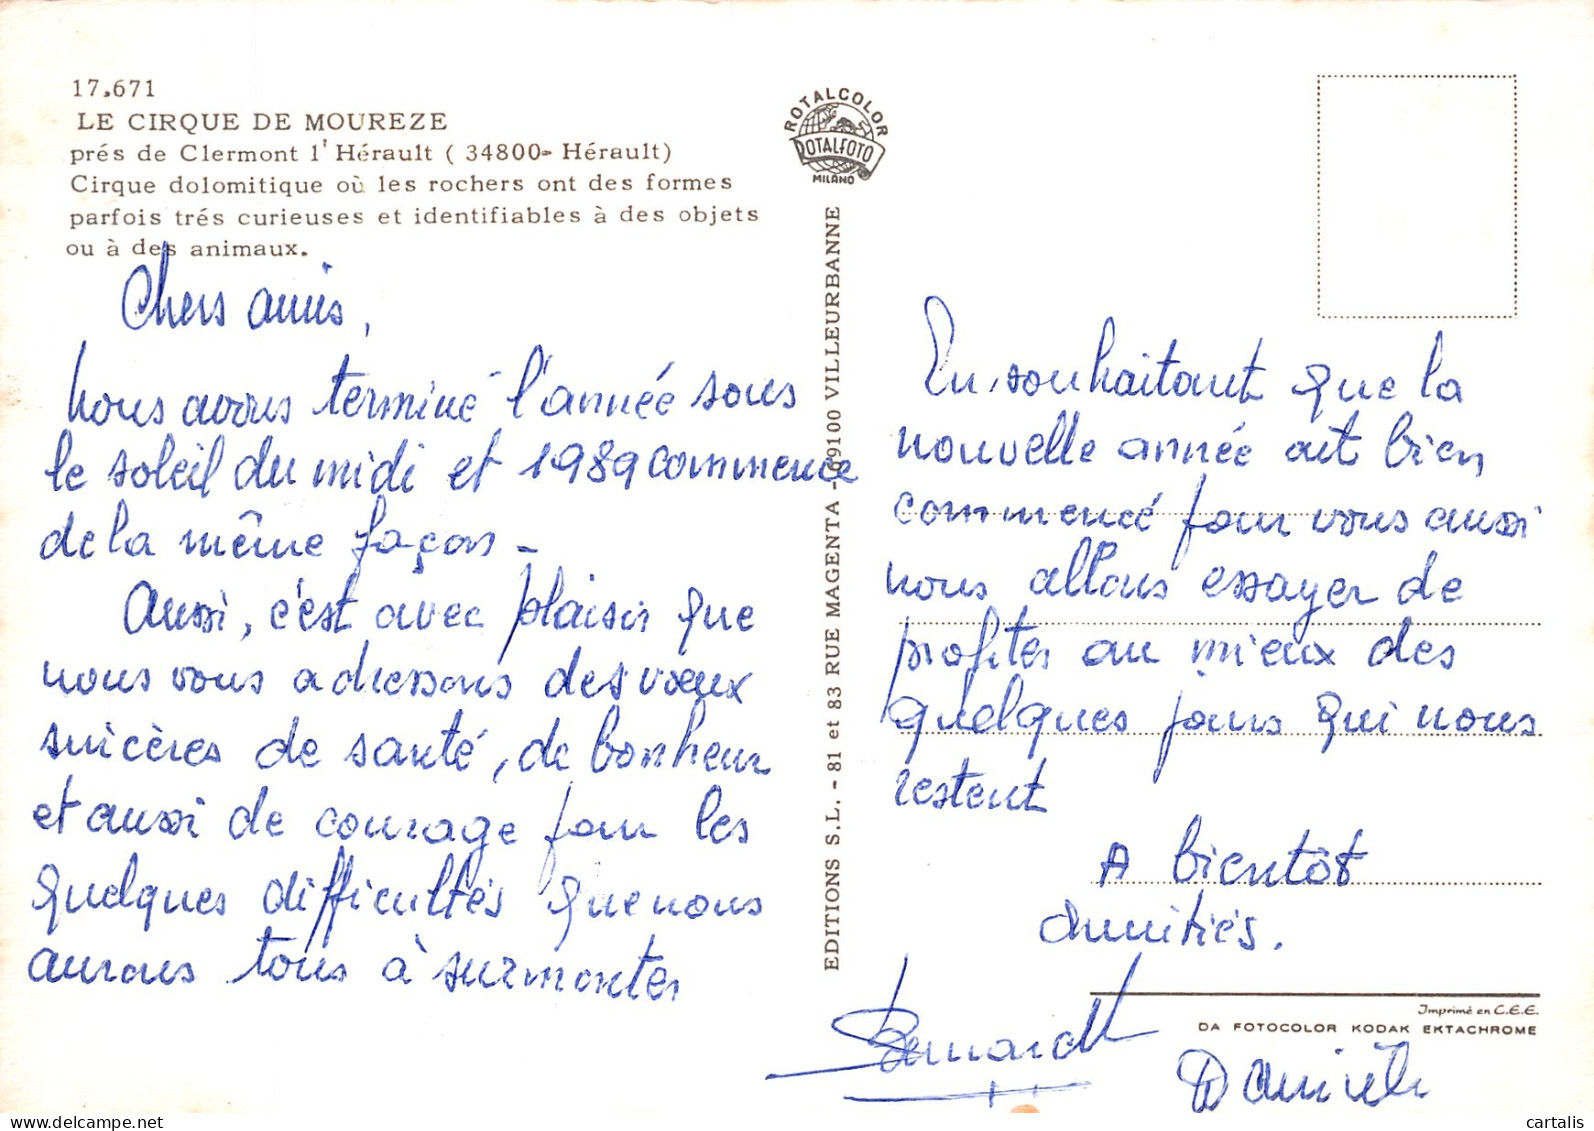 17.671
LE CIRQUE DE MOUREZE
prés de Clermont l'Hérault ( 34800- Hérault)
Cirque dolomitique où les rochers ont des formes
parfois trés curieuses et identifiables à des objets
ou à des animaux.
Chers amis,
nous avons terminé l'année sous
le soleil du midi et 1989 commence
de la même façon -
Aussi, c'est avec plaisir que
nous vous adressons des vœux
sincères de santé, de bonheur
et aussi de courage pour les
quelques difficultés que nous
aurons tous à surmonter
ROTALCOLOR
ROTALFOTO
MILANO
EDITIONS S.L. - 81 et 83 RUE MAGENTA - 69100 VILLEURBANNE
En souhaitant que la
nouvelle année ait bien
commencé pour vous aussi
nous allons essayer de
profiter au mieux des
quelques jours qui nous
restent
A bientôt
Amitiés.
Imprimé en C.E.E.
DA FOTOCOLOR KODAK EKTACHROME
Bernard
Danièle
cartalis
www.delcampe.net